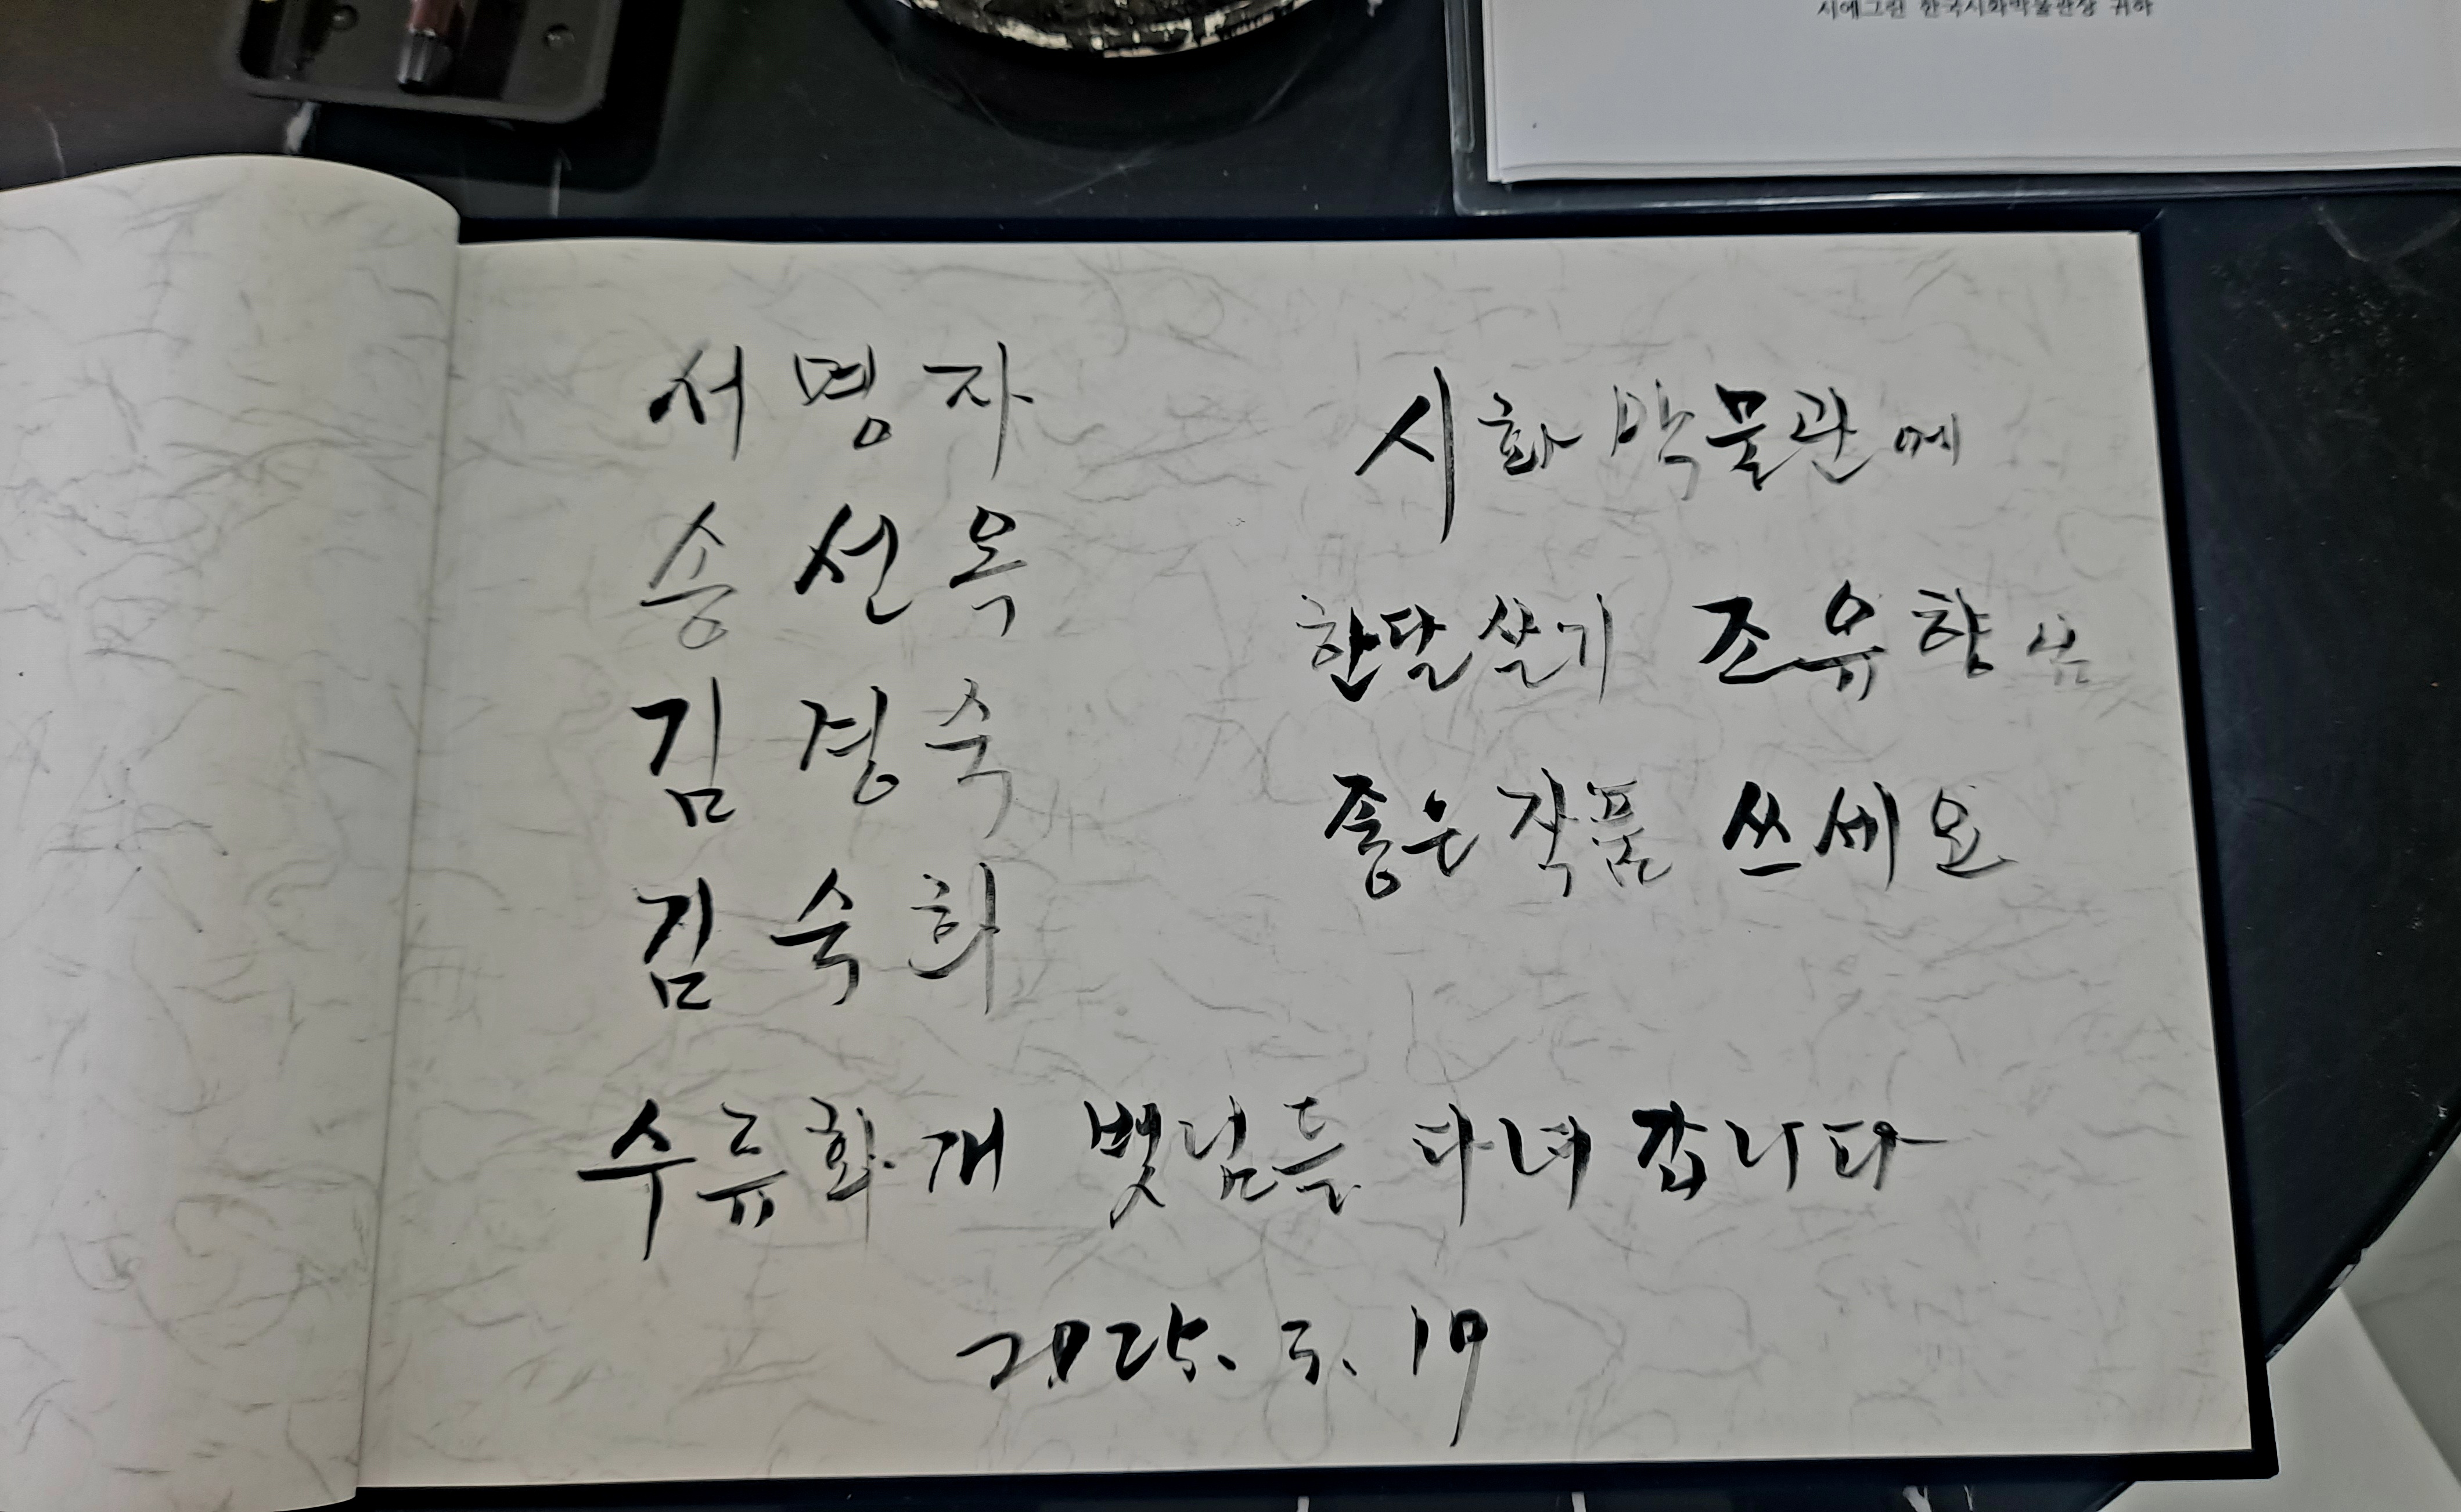 시에그린 한국시화박물관장 귀하
서명자
송선옥
김경숙
김숙희
시화박물관에
한달살기 조유향님
좋은 작품 쓰세요
수류화개 벗님들 다녀갑니다
2025. 5. 19